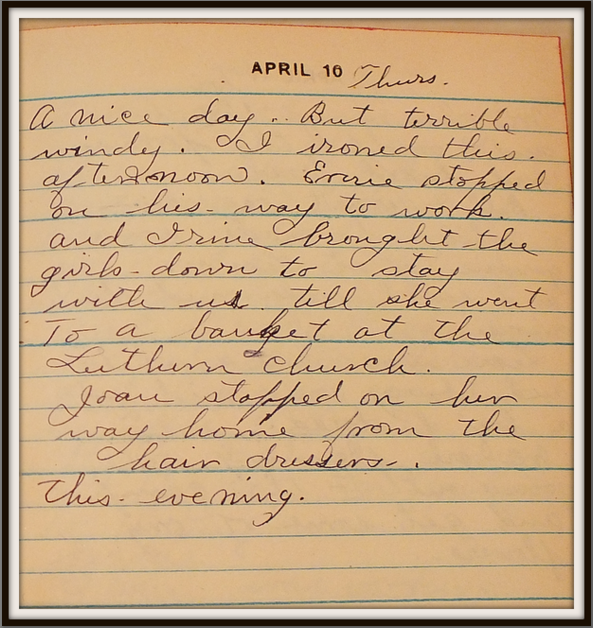 APRIL 10 Thurs.
A nice day.. But terrible
windy. I ironed this.
afternoon. Ernie stopped
on his way to work.
and Irine brought the
girls down to stay
with us till she went
To a banket at the
Luthurn church.
Joan stopped on her
way home from the
hair dressers.
this evening.